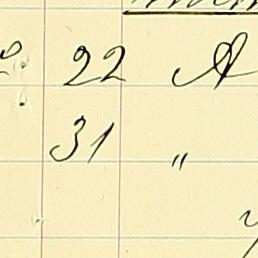 22 A
31 "